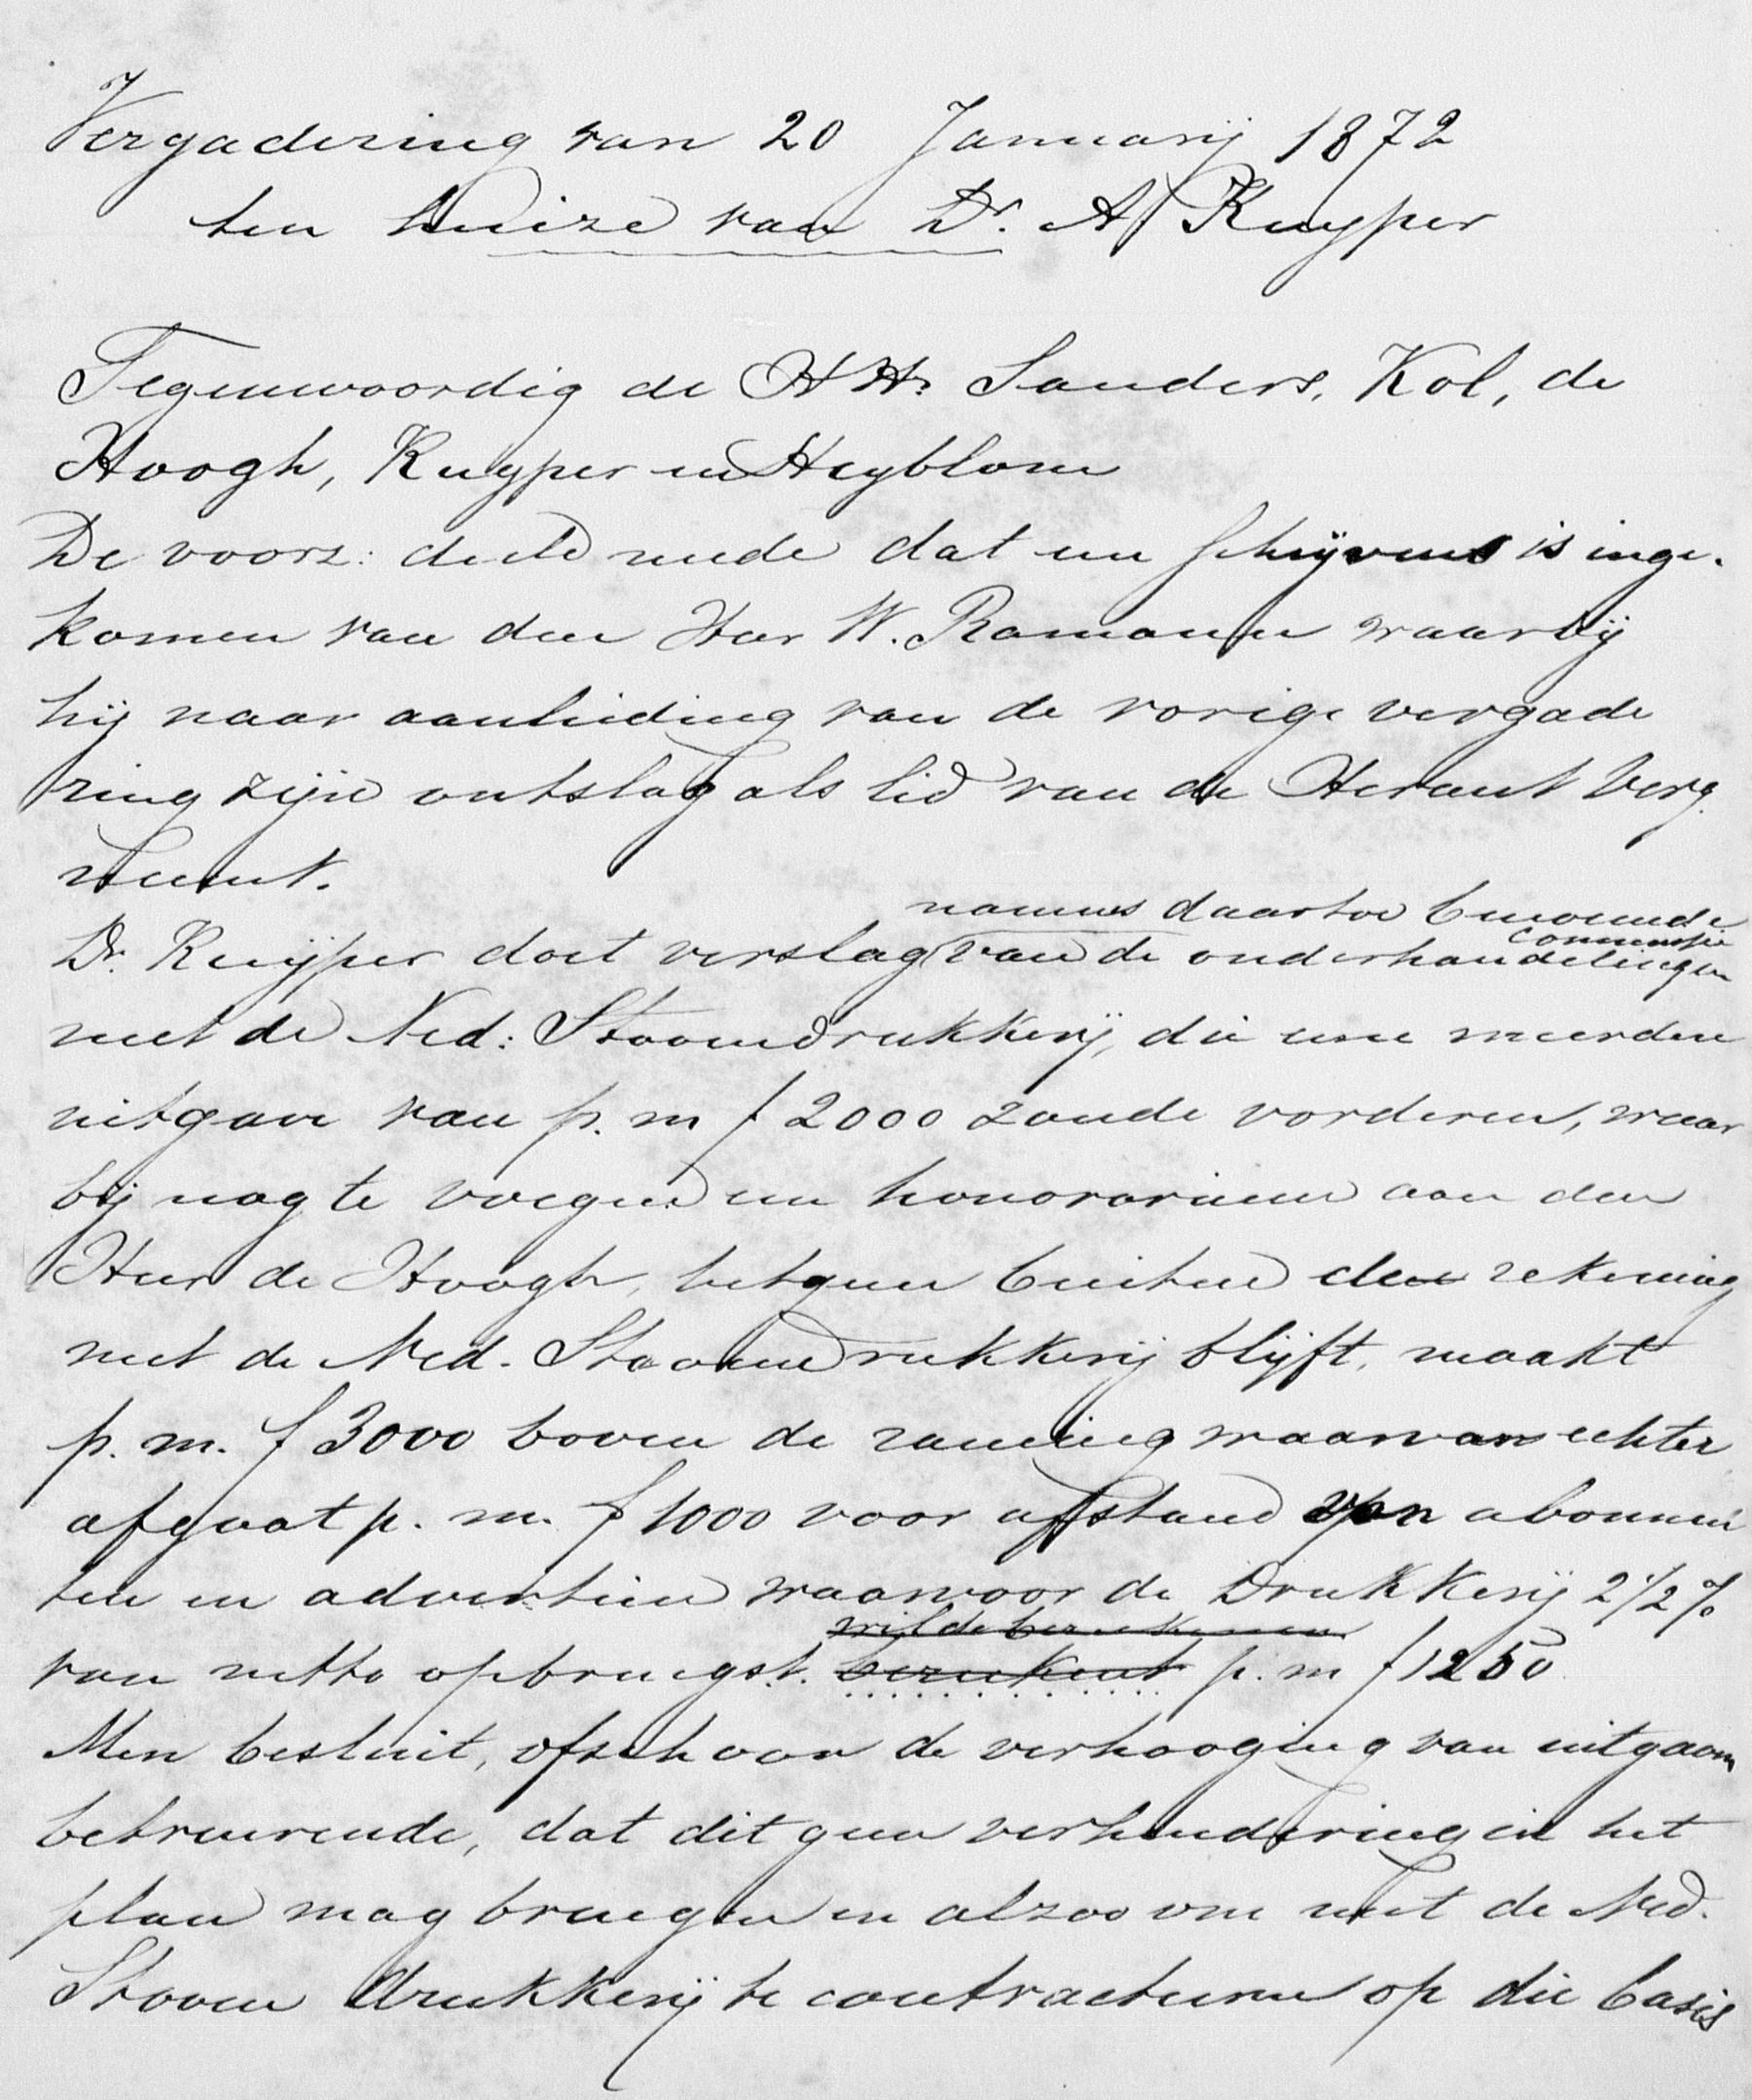 Vergadering van 20 Januarij 1872
ten huize van Dr. A Kuyper
Tegenwoordig de HH. Sanders, Kol, de
Hoogh, Kuyper en Heyblom
De voorz: deelt mede dat een schrijven is inge-
komen van den Heer W. Ramann waarbij
hij naar aanleiding van de vorige vergade
ring zijn ontslag als lid van de Heraut Verg.
neemt.
namens daartoe benoemde
commissie
Dr. Kuijper doet verslag van de onderhandelingen
met de Ned: Stoomdrukkerij, die eene meerdere
uitgave van p. m f 2000 zoude vorderen, waar
bij nog te voegen een honorarium aan den
Heer de Hoogh, hetgeen buiten de rekening
met de Ned. Stoomdrukkerij blijft, maakt
p. m. f 3000 boven de raming waarvan echter
afgaat p. m. f 1000 voor afstand van abonnen
ten en advertien waarvoor de Drukkerij 2 1/2 %
wilde berekenen
van netto opbrengst. berekent p. m f 1250
Men besluit, ofschoon de verhooging van uitgaven
betreurende, dat dit geen verhindering in het
plan mag brengen en alzoo om met de Ned.
Stoom drukkerij te contracteeren op die basis